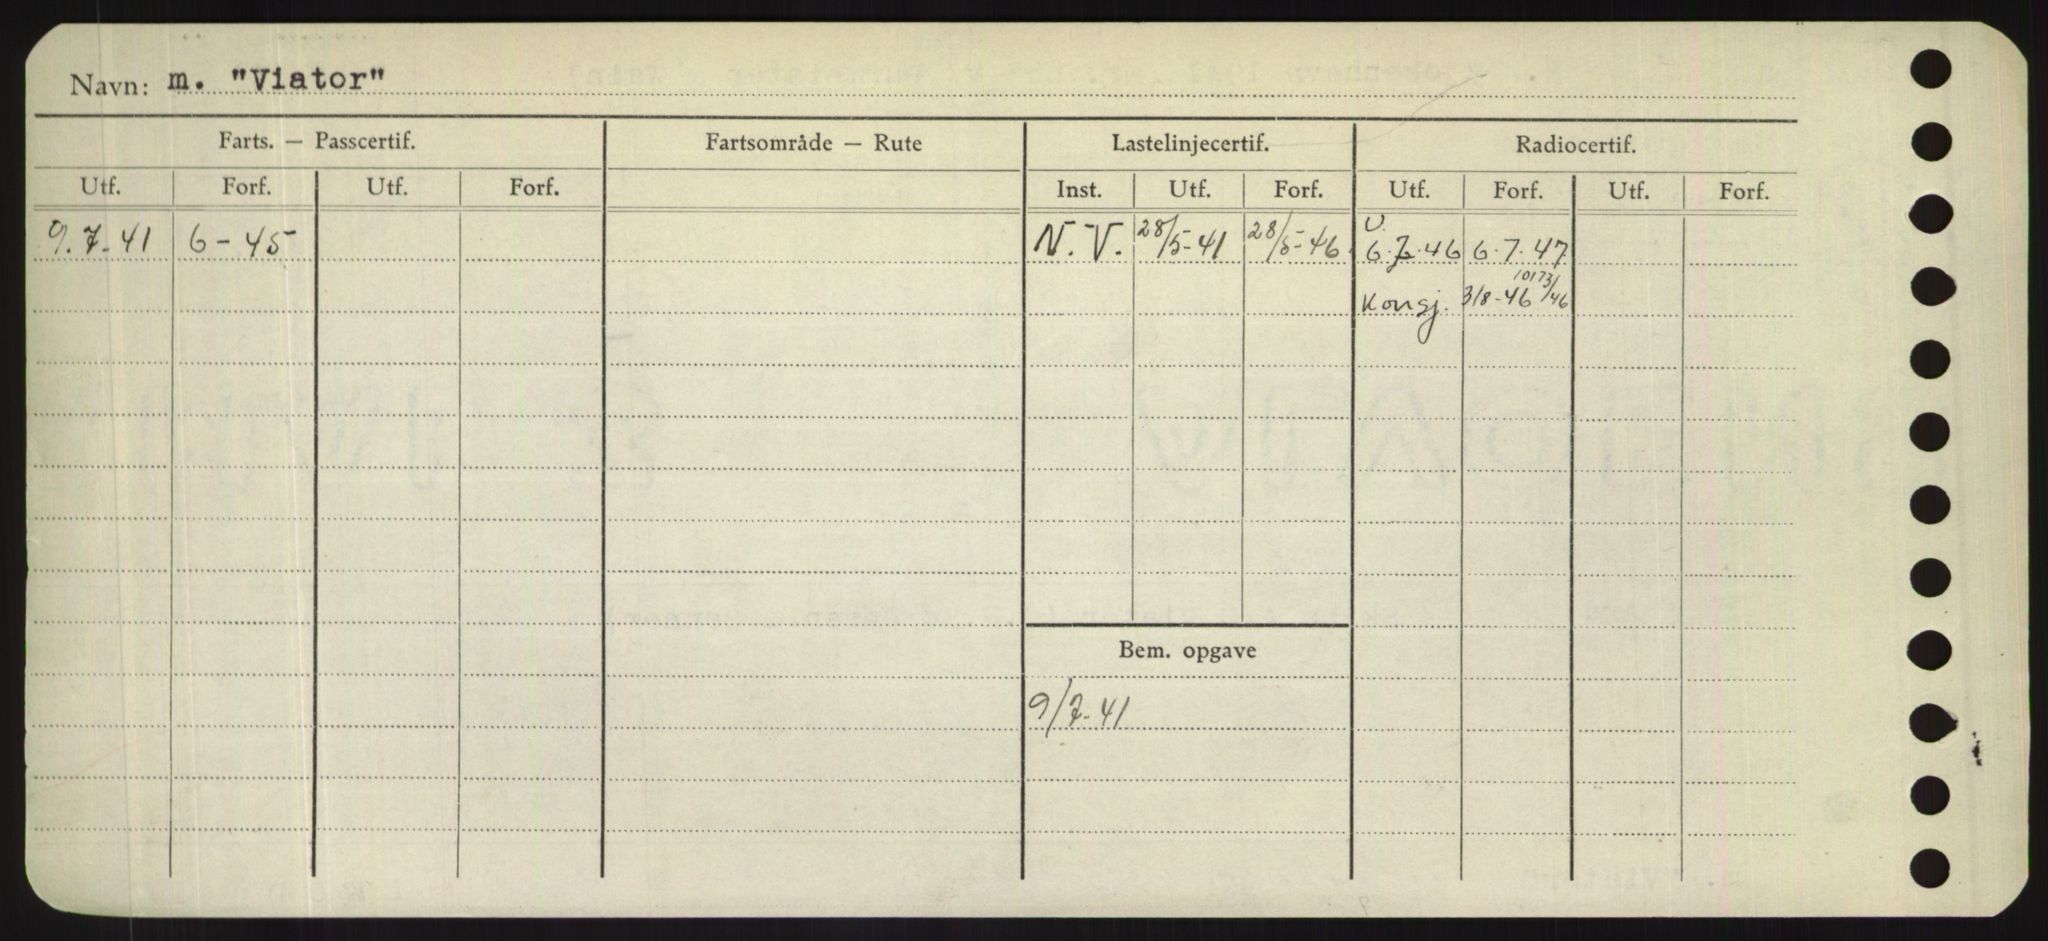 Navn: m. "Viator"
Farts. — Passcertif. Fartsområde — Rute Lastelinjecertif. Radiocertif.
Utf. Forf. Utf. Forf. Inst. Utf. Forf. Utf. Forf. Utf. Forf.
U.
9.7-41 6-45 N.V. 28/5-41 28/5-46. 6.7.46 6.7.47
Konsj. 3/8-46 10173/46
Bem. opgave
9/7-41